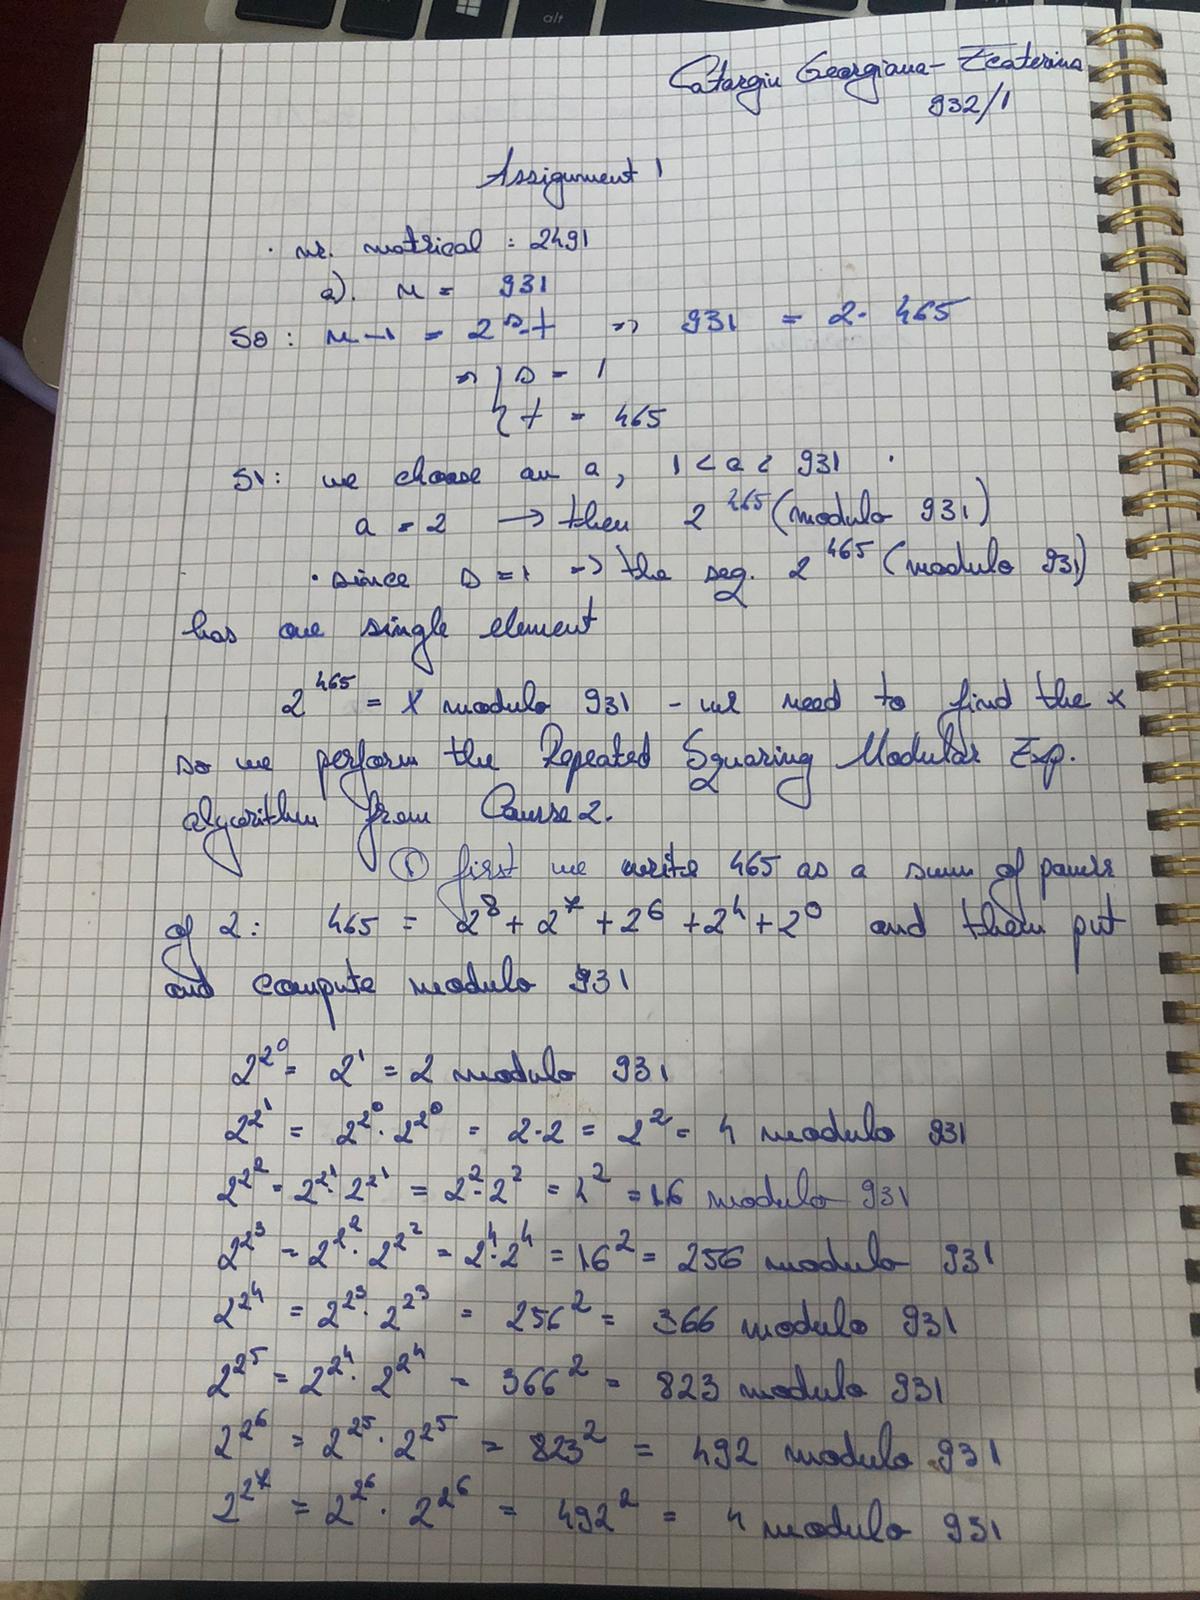 alt
Catargiu Georgiana-Ecaterina
932/1
Assignment 1
· nr. matricol : 2491
a). n = 931
S0 : n-1 = 2^s·t => 931 = 2· 465
=> { s = 1
{ t = 465
S1: we choose an a, 1 < a < 931 .
a = 2 -> then 2^465 (modulo 931)
· since s = 1 => the seq. 2^465 (modulo 931)
has one single element
2^465 = x modulo 931 - we need to find the x
so we perform the Repeated Squaring Modular Exp.
algorithm from Course 2.
① first we write 465 as a sum of powers
of 2: 465 = 2^8 + 2^7 + 2^6 + 2^4 + 2^0 and them put
and compute modulo 931
2^2^0 = 2^1 = 2 modulo 931
2^2^1 = 2^2^0 · 2^2^0 = 2·2 = 2^2 = 4 modulo 931
2^2^2 = 2^2^1 · 2^2^1 = 2^2 · 2^2 = 4^2 = 16 modulo 931
2^2^3 = 2^2^2 · 2^2^2 = 2^4 · 2^4 = 16^2 = 256 modulo 931
2^2^4 = 2^2^3 · 2^2^3 = 256^2 = 366 modulo 931
2^2^5 = 2^2^4 · 2^2^4 = 366^2 = 823 modulo 931
2^2^6 = 2^2^5 · 2^2^5 = 823^2 = 492 modulo 931
2^2^7 = 2^2^6 · 2^2^6 = 492^2 = 4 modulo 931